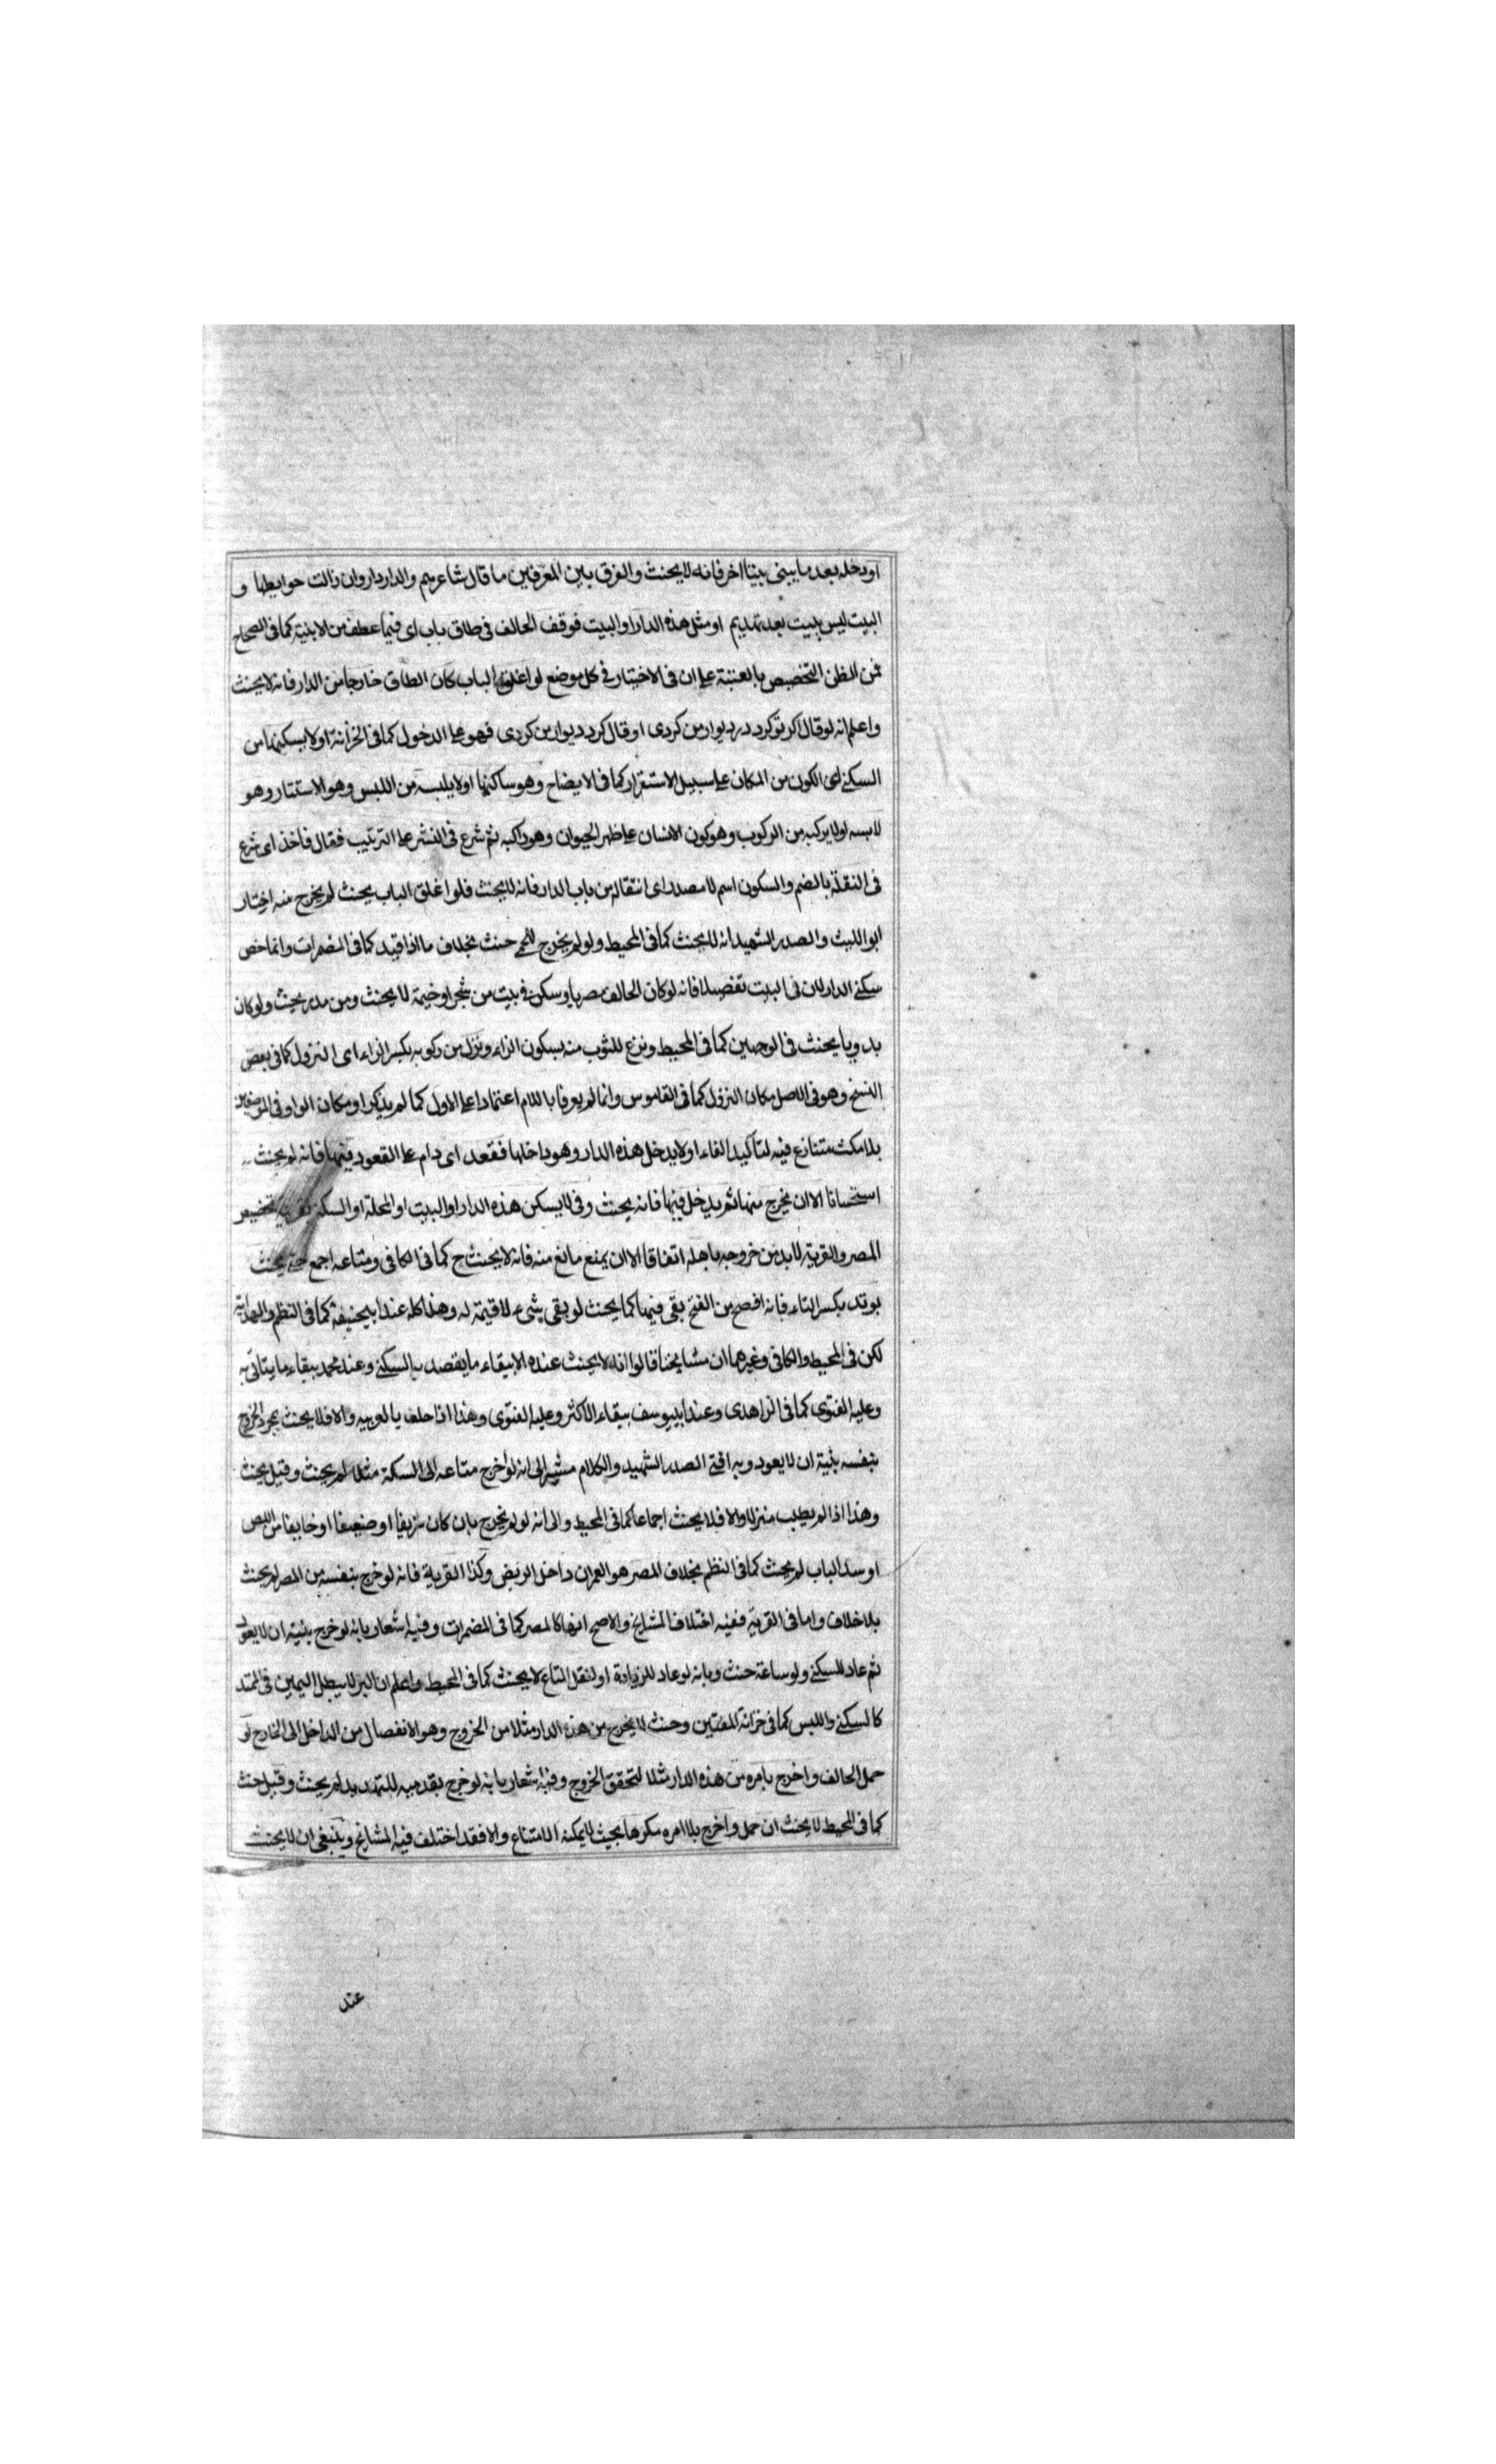 او دخله بعد ما يبنى بيتا اخر فانه لا يحنث والفرق بين المعرفين ما قال شاعرهم والدار دار وان زالت حوايطها و
البيت ليس ببيت بعد تهديم او مثل هذه الدار او البيت فوقف الحالف فى طاق باب اى فيما عطف من الابنية كما فى الصحاح
فمن الظن التخصيص بالعتبة على ان فى الاختيار فى كل موضع لو اغلق الباب كان الطاق خارجا من الدار فانه لا يحنث
واعلم انه لو قال اكر تو كرد در ديوار من كردى او قال كرد ديوار من كردى فهو على الدخول كما فى الخزانة او لا يسكنها من
السكنى اى الكون من المكان على سبيل الاستقرار كما فى الايضاح وهو ساكنها او لا يلبسه من اللبس وهو الاستتار وهو
لابسه او لا يركبه من الركوب وهو كون الانسان على ظهر الحيوان وهو راكبه ثم شرع فى النشر على الترتيب فقال فاخذ اى شرع
فى النقلة بالضم والسكون اسم لا مصدر اى انتقاله من باب الدار فانه لا يحنث فلو اغلق الباب بحيث لم يخرج منه اختار
ابو الليث والصدر الشهيد انه لا يحنث كما فى المحيط ولو لم يخرج حنث بخلاف ما اذا قيد كما فى المضمرات وانما خص
سكنى الدار لان فى البيت تفصيلا فانه لو كان الحالف مصريا وسكن فى بيت من شجر او خيمة لا يحنث ومن مدر يحنث ولو كان
بدويا يحنث فى الوجهين كما فى المحيط ونزع للثوب منه بسكون الزاء ونزل من ركوبه بكسر الزاء اى النزول كما فى بعض
النسخ وهو فى الاصل مكان النزول كما فى القاموس وانما لم يعرفا باللام اعتمادا على الاول كما لم يذكر او مكان الواو فى الموضعين
بلا مكث متنازع فيه لتاكيد الفاء او لا يدخل هذه الدار وهو داخلها فقعد اى دام على القعود فيها فانه لم يحنث
استحسانا الا ان يخرج منها ثم يدخل فيها فانه يحنث وفى لا يسكن هذه الدار او البيت او المحلة او السكة بقرينة تخصيص
المصر والقرية لا بد من خروجه باهله اتفاقا الا ان يمنع مانع منه فانه لا يحنث ح كما فى الكافى ومتاعه اجمع حتى يحنث
بوتد بكسر التاء فانه افصح من الفتح بقى فيها كما يحنث لو بقى شىء لا قيمة له وهذا كله عند ابيحنيفة كما فى النظم والهداية
لكن فى المحيط والكافى وغيرهما ان مشايخنا قالوا انه لا يحنث عنده الا ببقاء ما يقصد به السكنى وعند محمد ببقاء ما يتاتى به
وعليه الفتوى كما فى الزاهدى وعند ابييوسف ببقاء الاكثر وعليه الفتوى وهذا اذا حلف بالعربيه والا فلا يحنث بمجرد الخروج
بنفسه بنية ان لا يعود وبه افتى الصدر الشهيد والكلام مشير الى انه لو اخرج متاعه الى السكة مثلا لم يحنث وقيل يحنث
وهذا اذا لم يطلب منزلا والا فلا يحنث اجماعا كما فى المحيط والى انه لو لم يخرج بان كان شريفا او ضعيفا او خايفا من اللص
او سد الباب لم يحنث كما فى النظم بخلاف المصر هو العمران داخل الربض وكذا القرية فانه لو خرج بنفسه من المصر لم يحنث
بلا خلاف واما فى القرية ففيه اختلاف المشايخ والاصح انها كالمصر كما فى المضمرات وفيه اشعار بانه لو خرج بنية ان لا يعود
ثم عاد للسكنى ولو ساعة حنث وبانه لو عاد للزيادة او لنقل المتاع لا يحنث كما فى المحيط واعلم ان البر لا يبطل اليمين فى الممتد
كالسكنى واللبس كما فى خزانة المفتين وحنث لا يخرج من هذه الدار مثلا من الخروج وهو الانفصال من الداخل الى الخارج لو
حمل الحالف واخرج بامره من هذه الدار مثلا لتحقق الخروج وفيه اشعار بانه لو خرج بقدميه للتهديد لم يحنث وقيل حنث
كما فى المحيط لا يحنث ان حمل واخرج بلا امره مكرها بحيث لا يمكنه الامتناع والا فقد اختلف فيه المشايخ وينبغى ان لا يحنث
عند